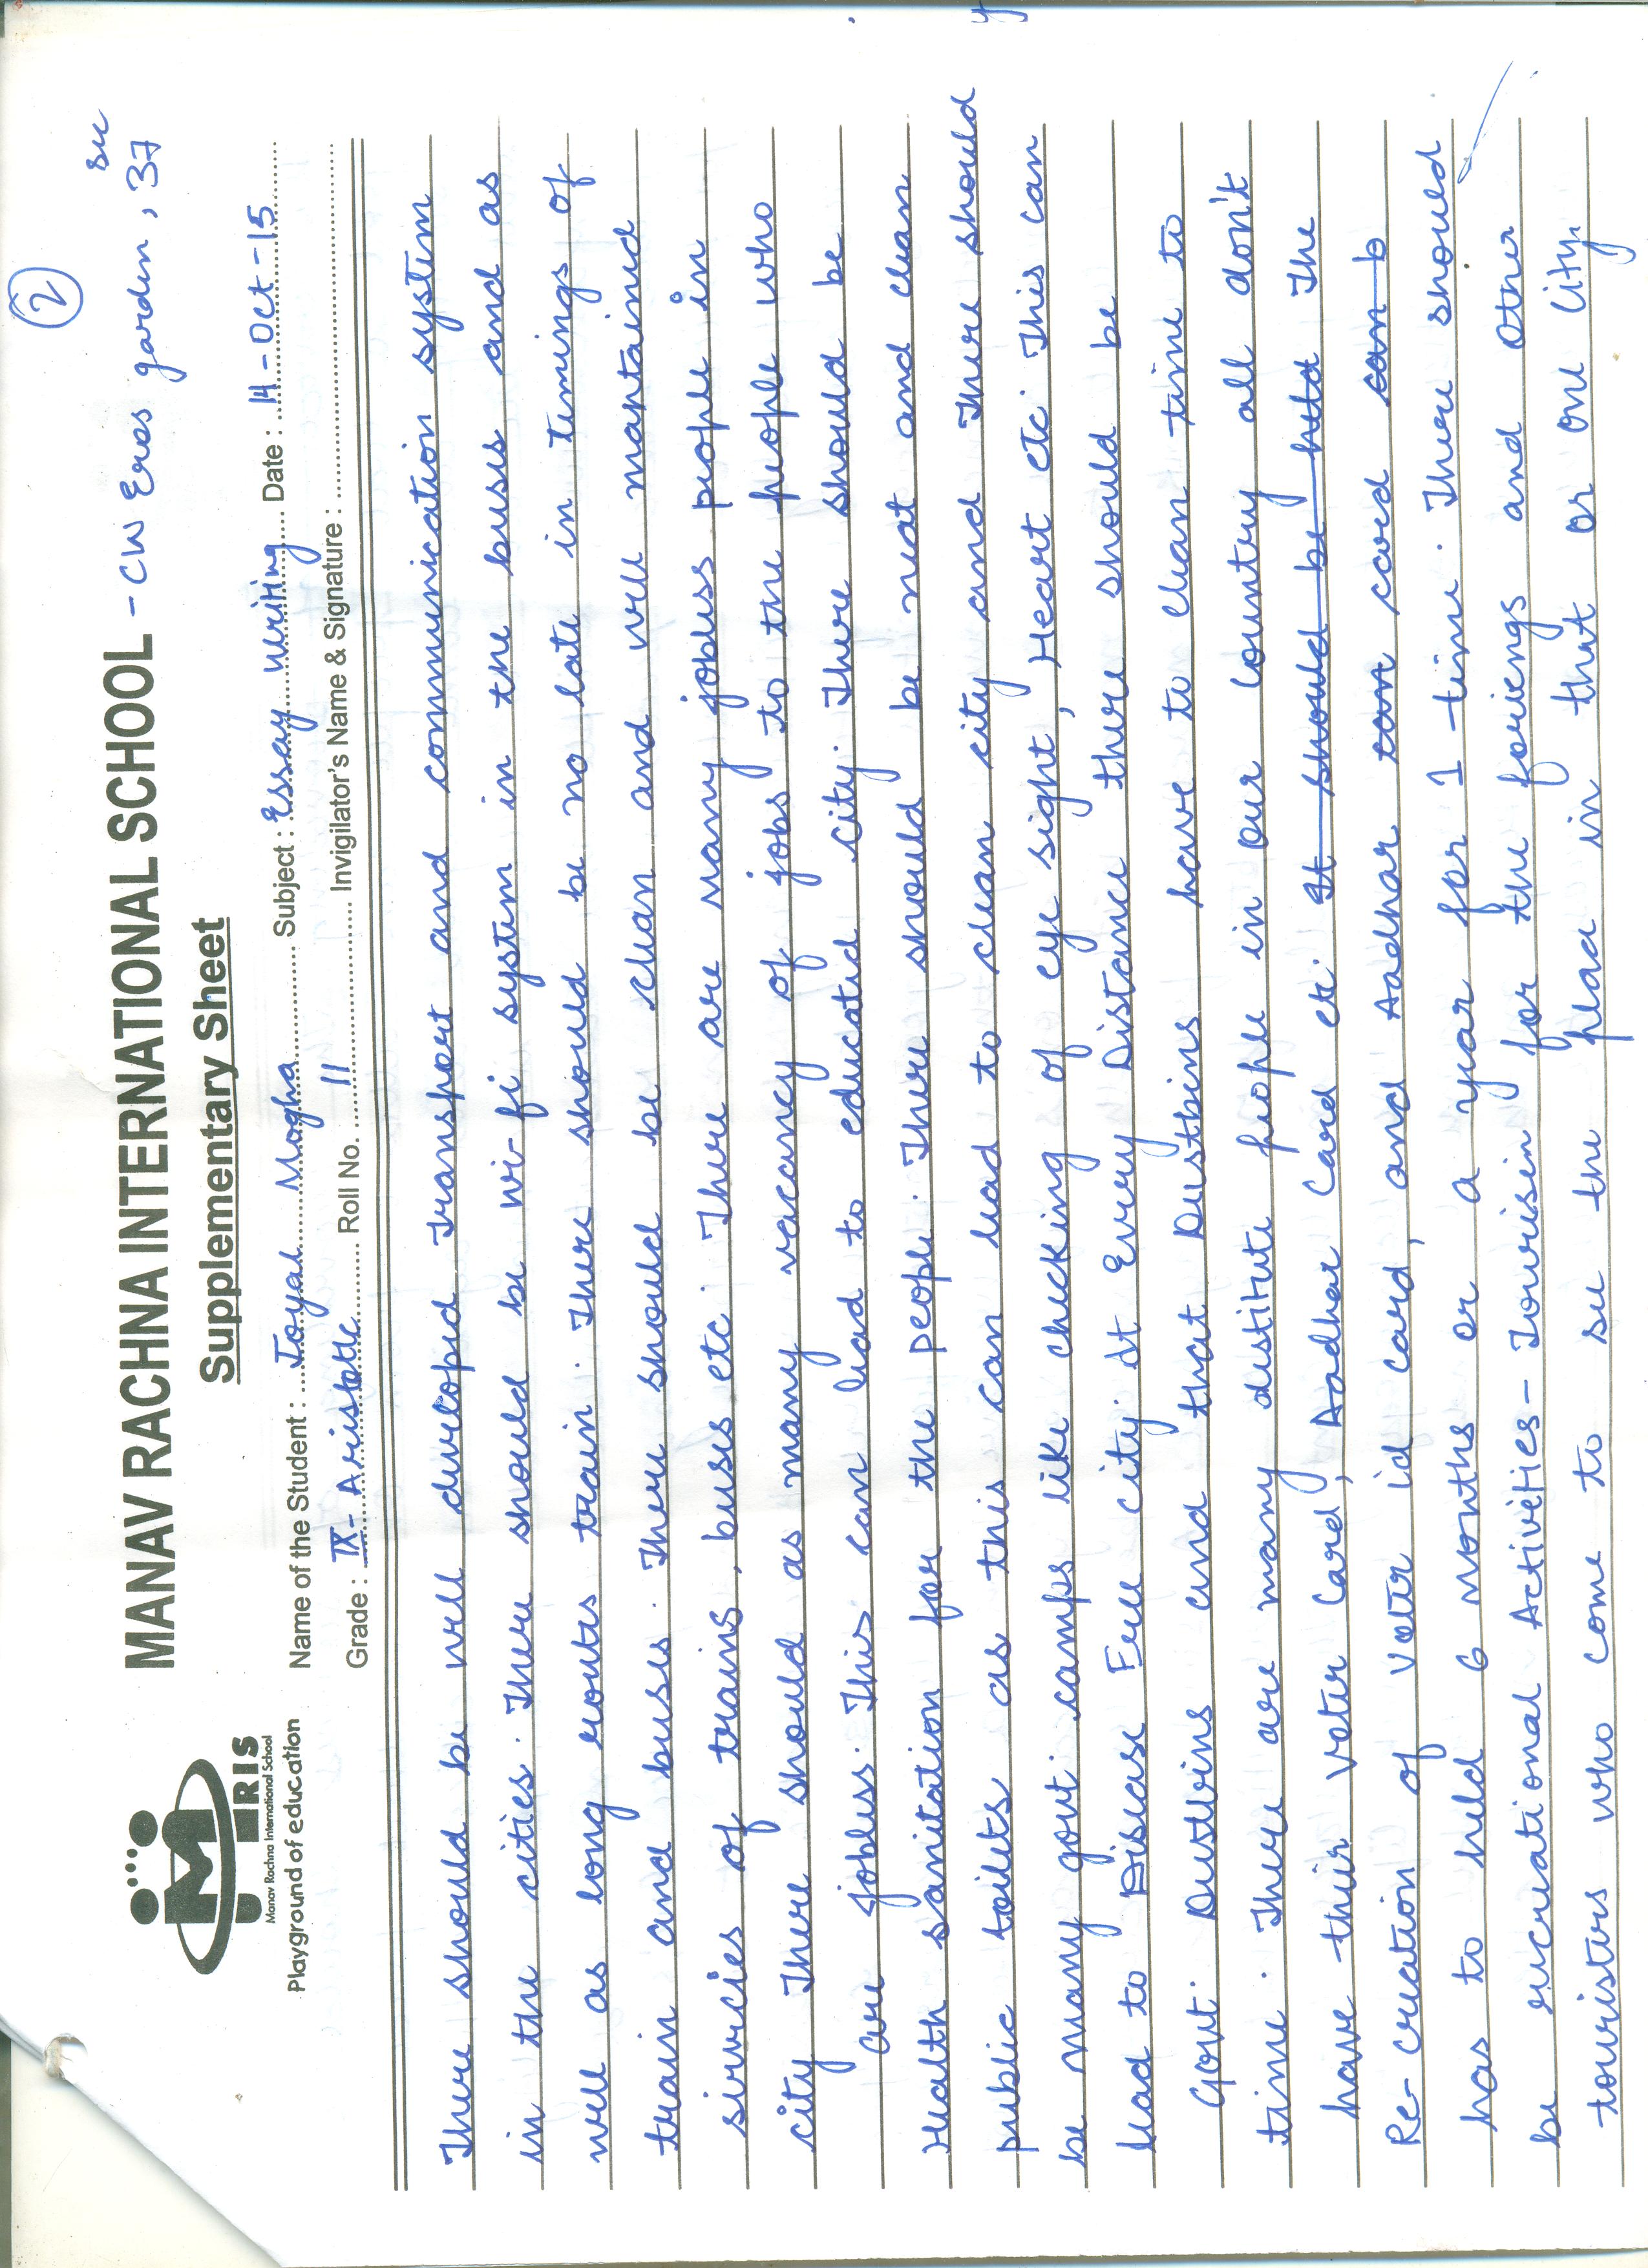 2
MANAV RACHNA INTERNATIONAL SCHOOL - CW Eros garden, 37
Supplementary Sheet
M
IRIS
Manav Rachna International School
Playground of education
Name of the Student : Joyal Mogha Subject : Essay Writing Date : 14-Oct-15
Grade : IX- Aristotle Roll No. 11 Invigilator's Name & Signature :
There should be well developed Transport and communication system
in the cities. There should be wi-fi system in the buses and as
well as long routes train. There should be no late in timings of
train and buses. There should be clean and well maintained
servicies of trains, buses etc. There are many jobless people in
city There should as many vacancy of jobs to the people who
are jobless. This can lead to educated city. There should be
Health sanitation for the people. There should be neat and clean
public toilets as this can lead to clean city and There should
be many govt. camps like checking of eye sight, Heart etc. This can
lead to Disease Free city. At Every Distance there should be
Govt. Dustbins and that Dustbins have to clean time to
time. There are many distitute people in our country all don't
have their voter Card, Aadhar Card etc. It should be held The
Re-creation of voter id card, and Aadhar can card can b
has to held 6 months or a year for 1 time. There should
be recreational Activeties- Tourism for the foriengs and Other
touristers who come to see the place in that or one City.